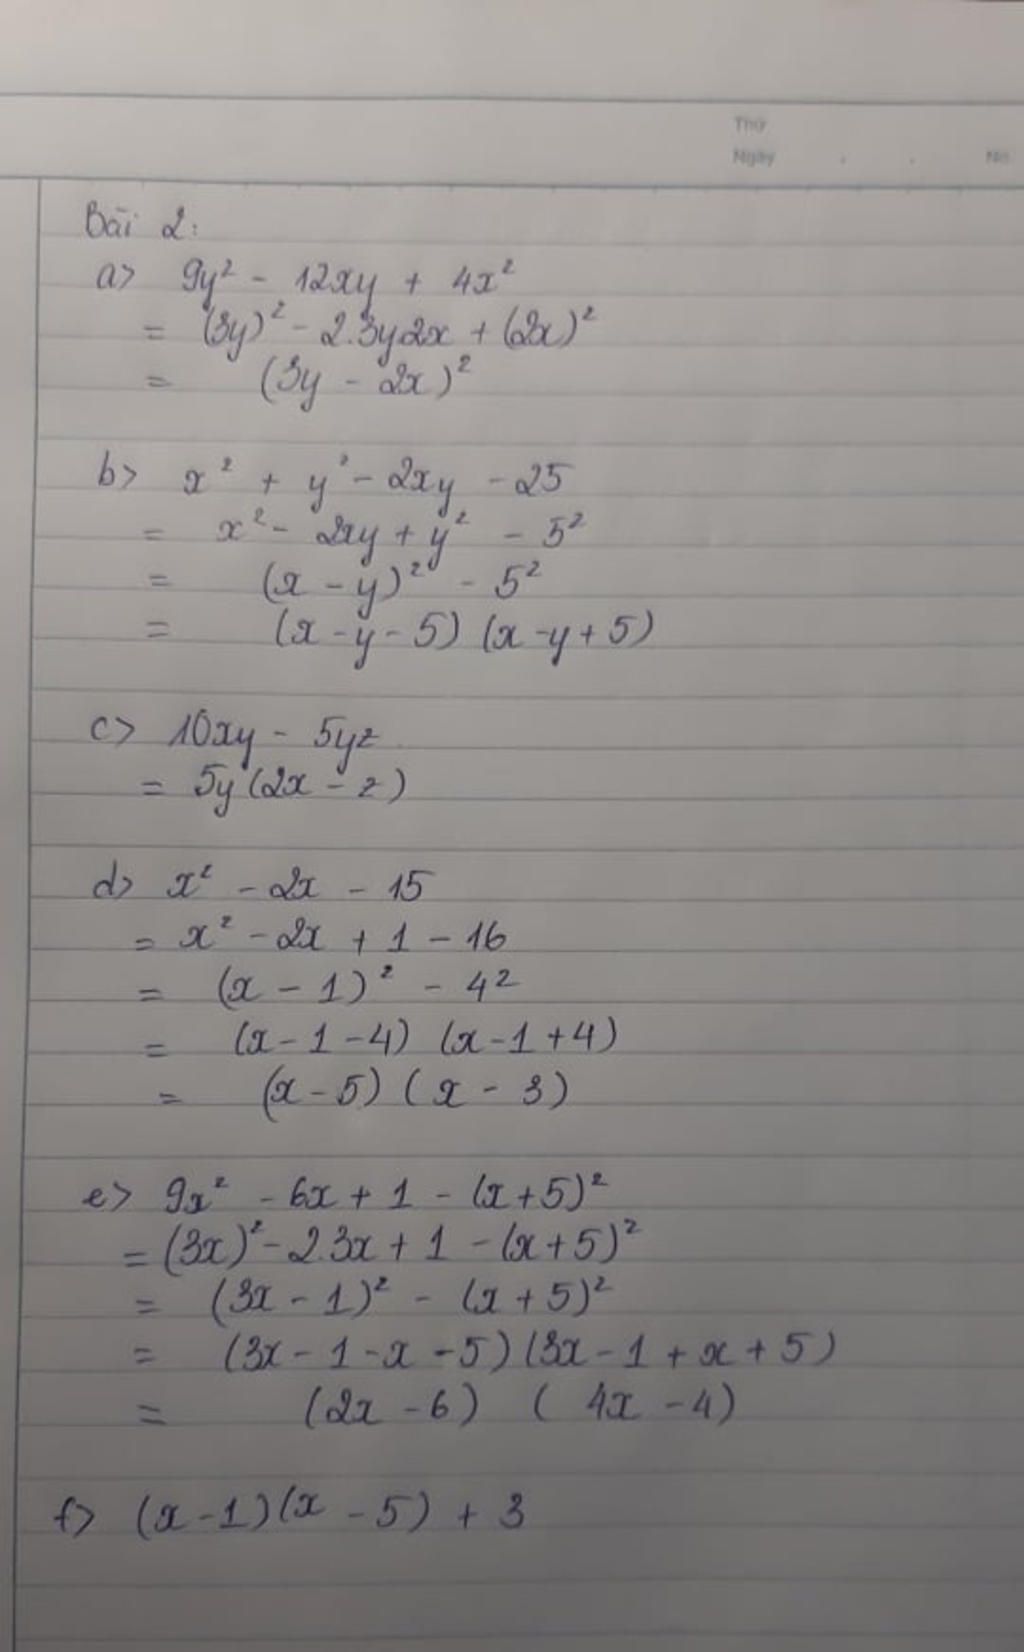 Thứ
Ngày . . No
Bài 2:
a> 9y² - 12xy + 4x²
= (3y)² - 2.3y2x + (2x)²
= (3y - 2x)²
b> x² + y² - 2xy - 25
= x² - 2xy + y² - 5²
= (x - y)² - 5²
= (x - y - 5) (x - y + 5)
c> 10xy - 5yz
= 5y(2x - z)
d> x² - 2x - 15
= x² - 2x + 1 - 16
= (x - 1)² - 4²
= (x - 1 - 4) (x - 1 + 4)
= (x - 5) (x - 3)
e> 9x² - 6x + 1 - (x + 5)²
= (3x)² - 2.3x + 1 - (x + 5)²
= (3x - 1)² - (x + 5)²
= (3x - 1 - x - 5) (3x - 1 + x + 5)
= (2x - 6) (4x - 4)
f> (x - 1)(x - 5) + 3